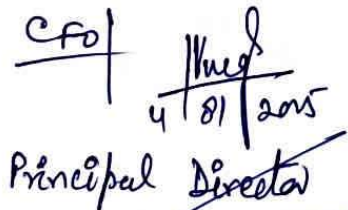 CFO
4 8 2015
Principal Director